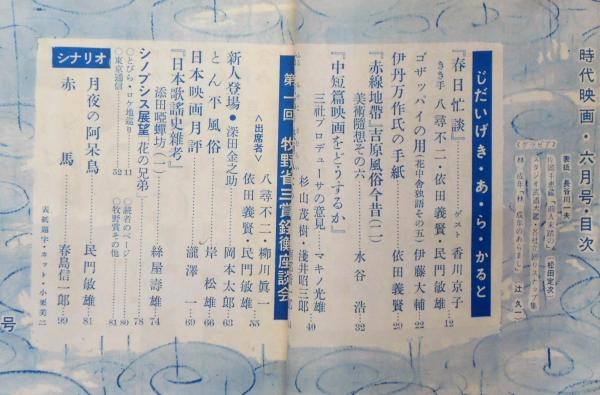 時代映画・六月号・目次
表紙・長谷川一夫
(松田定次)
辻久一
じだいげき・あ・ら・かると
『春日忙談』 ゲスト 香川京子…12
きき手 八尋不二・依田義賢・民門敏雄
ゴザッパイの用(花中舎独語その五) 伊藤大輔…22
伊丹万作氏の手紙 依田義賢…29
『赤線地帯』吉原風俗今昔(一)
美術随想その六 水谷浩…32
『中短篇映画をどうするか』
三社プロデューサの意見 マキノ光雄
杉山茂樹・浅井昭三郎…40
第一回 牧野省三賞銓衡座談会
<出席者> 八尋不二・柳川真一
依田義賢・民門敏雄…55
新人登場・深田金之助 岡本太郎…63
とん平風俗 岸松雄…66
日本映画月評 瀧澤一…69
『日本歌謡史雑考』
添田唖蝉坊(一) 絲屋寿雄…74
シノプシス展望(花の兄弟)…78
○とびら・ロケ地巡り…11
○東京通信…52
○読者のページ…80
○牧野賞その他…81
シナリオ
月夜の阿呆鳥 民門敏雄…81
赤馬 春島信一郎…99
表紙題字・カット・小栗美二
号